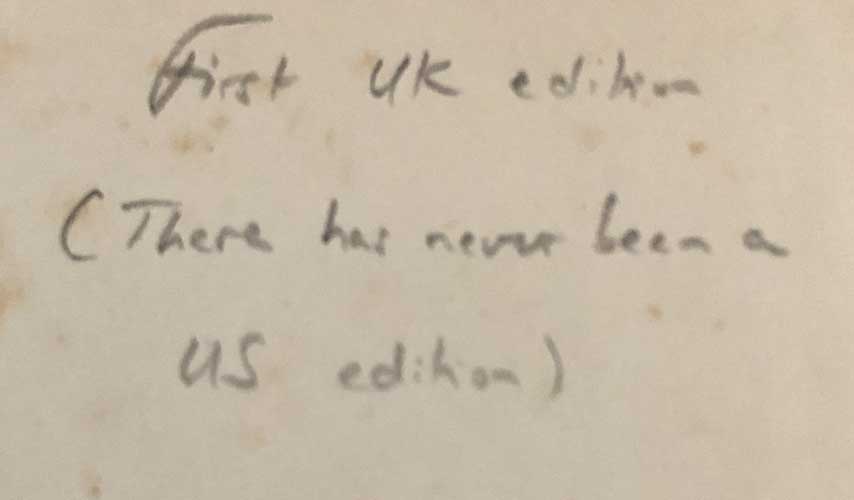 First UK edition
(There has never been a
US edition)